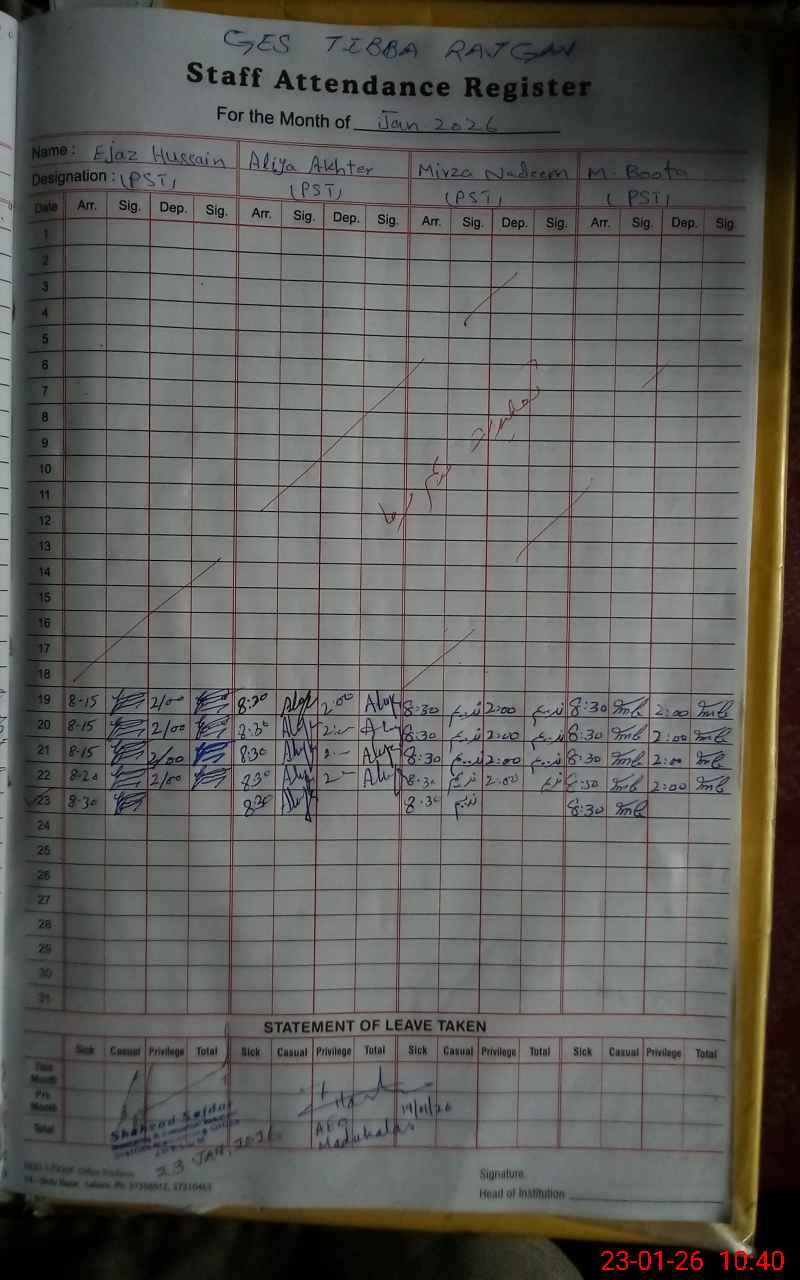 GES TIBBA RAJGAN
Staff Attendance Register
For the Month of Jan 2026
Name : Ejaz Hussain Aliya Akhter Mirza Nadeem M. Boota
Designation : (PST) (PST) (PST) (PST)
Date Arr. Sig. Dep. Sig. Arr. Sig. Dep. Sig. Arr. Sig. Dep. Sig. Arr. Sig. Dep. Sig.
1
2
3
4
5
6
7
8
9
10
11
12
13
14
15
16
17
18
19 8-15 2/00 8:30 2:00 8:30 ندیم 2:00 ندیم 8:30 2:00
20 8-15 2/00 8:30 8:30 ندیم 2:00 ندیم 8:30 2:00
21 8-15 2/00 8:30 8:30 ندیم 2:00 ندیم 8:30 2:00
22 8-20 2/00 8:30 8:30 ندیم 2:00 ندیم 8:30 2:00
23 8-30 8:30 8:30 ندیم 8:30
24
25
26
27
28
29
30
31
STATEMENT OF LEAVE TAKEN
Sick Casual Privilege Total Sick Casual Privilege Total Sick Casual Privilege Total Sick Casual Privilege Total
This Month
Pre. Month
Total
Shahzad Safdar
23 JAN, 2026
AEO
19/01/26
Signature
Head of Institution
23-01-26 10:40